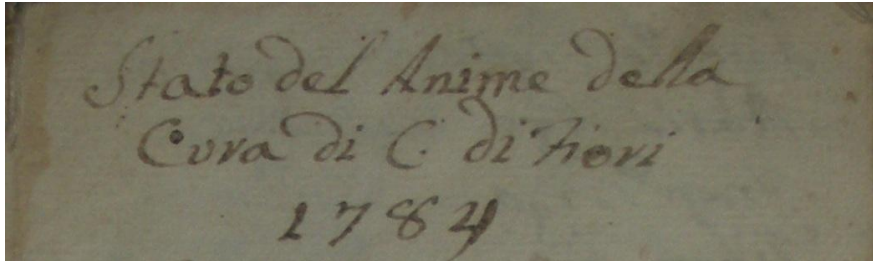 Stato del Anime della
Cura di C. di Fiori
1784